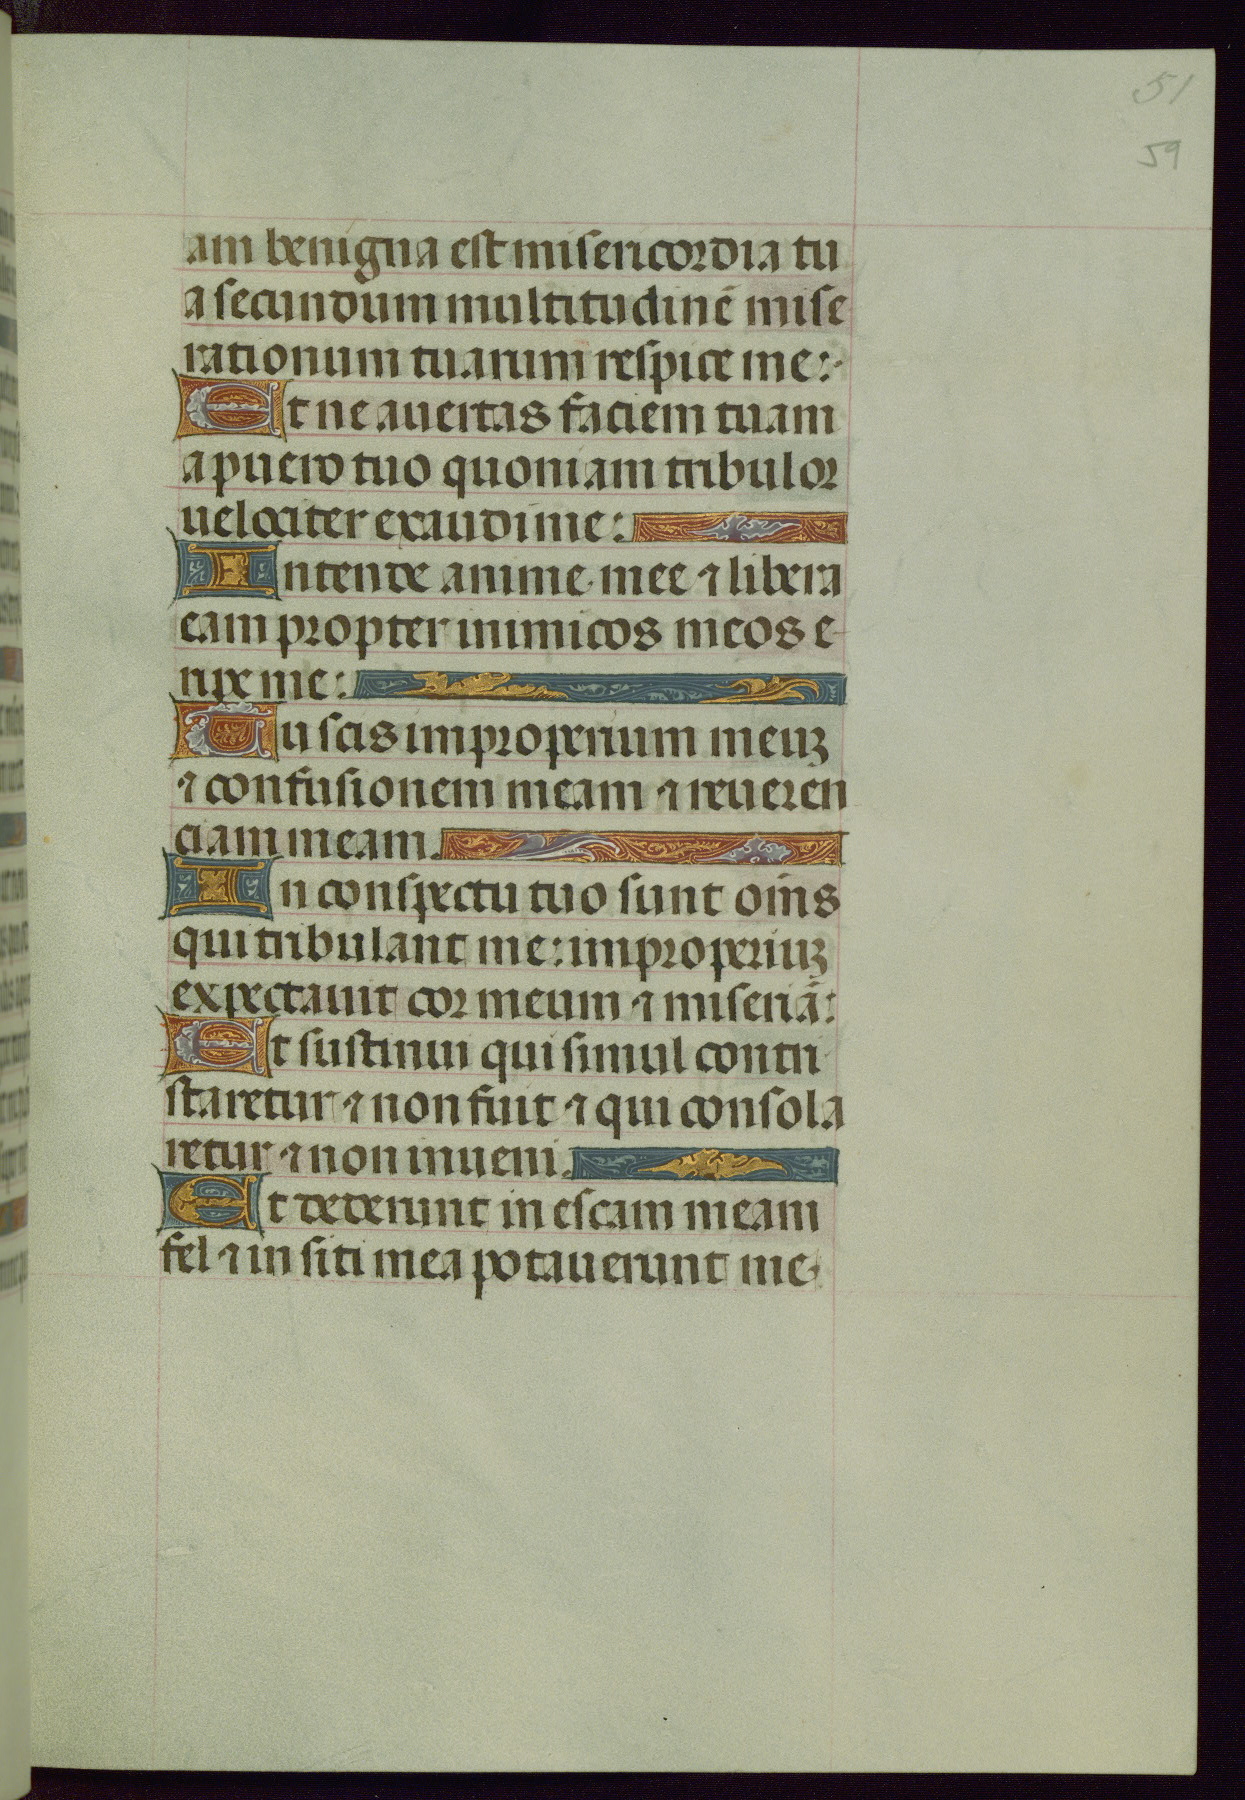 51
59
am benigna est misericordia tu
a secundum multitudinē mise
rationum tuarum respice me:·
Et ne auertas faciem tuam
a puero tuo quoniam tribulor
uelociter exaudi me:
Intende anime mee ⁊ libera
eam propter inimicos meos e
ripe me:
Tu scis improperium meuꝫ
⁊ confusionem meam ⁊ reueren
ciam meam.
In conspectu tuo sunt om̄s
qui tribulant me: improperiuꝫ
expectauit cor meum ⁊ miseriā:
Et sustinui qui simul contri
staretur ⁊ non fuit ⁊ qui consola
retur ⁊ non inueni.
Et dederunt in escam meam
fel ⁊ in siti mea potauerunt me